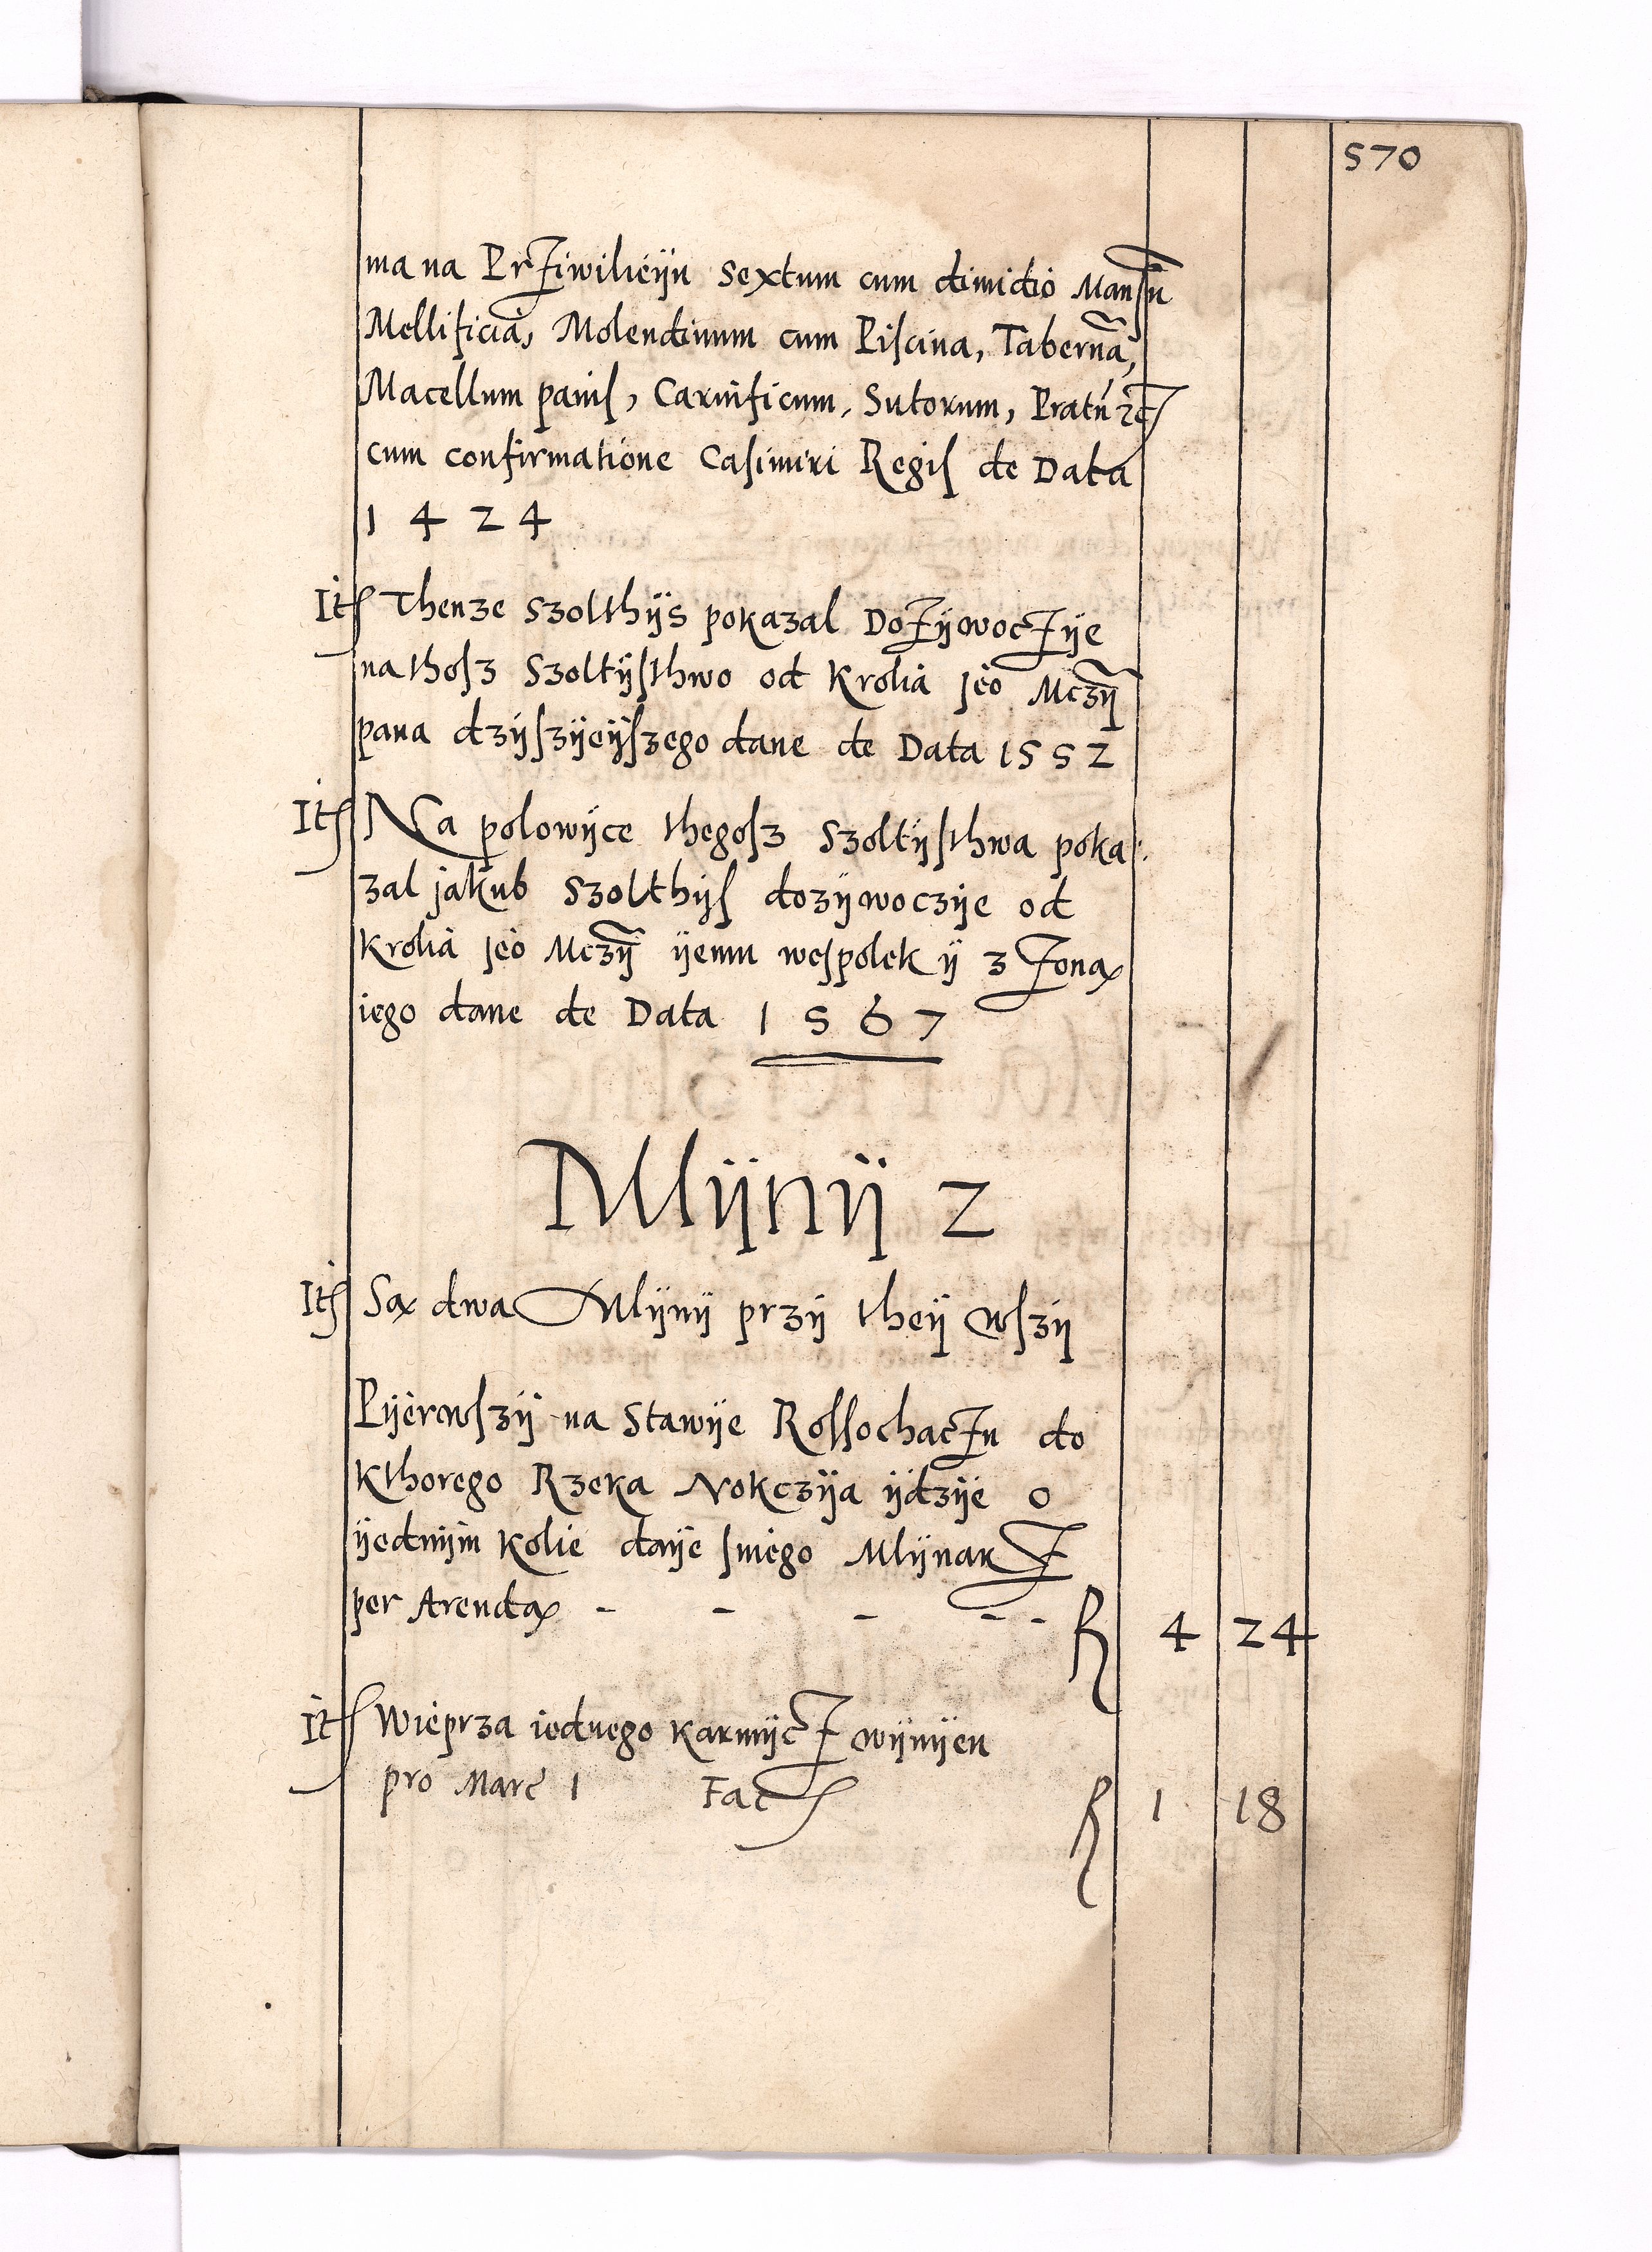 570
ma na Prziwilieÿu Sextum cum dimidio Mansū
Mellificia, Molendinum cum Piscina, Tabernā,
Macellum panis, Carnificum, Sutorum, Pratū etc
cum confirmatione Casimiri Regis de Data
1 4 2 4
It Thenze Szolthÿs pokazal Dozÿwoczÿe
na thosz Szoltÿsthwo od Krolia jeo Mczÿ
pana dzÿszÿeÿszego dane de Data 1552
It Na polowÿce thegosz Szoltÿsthwa poka:
zal jakub Szolthÿs dozÿwoczÿe od
Krolia jeo Mczÿ ÿemu wespolek ÿ z zoną
iego dane de Data 1 5 6 7
Mlÿnÿ 2
It Są dwa Mlÿnÿ przÿ theÿ wszÿ
Pÿerwszÿ na Stawÿe Rossochaczu do
kthorego Rzeka Nokczÿa ÿdzÿe o
ÿednÿm kolie daÿe sniego Mlÿnarz
per Arendą - - - - - R 4 24
It Wieprza iednego karmÿcz wÿnÿen
pro Marc 1 Fac R 1 18